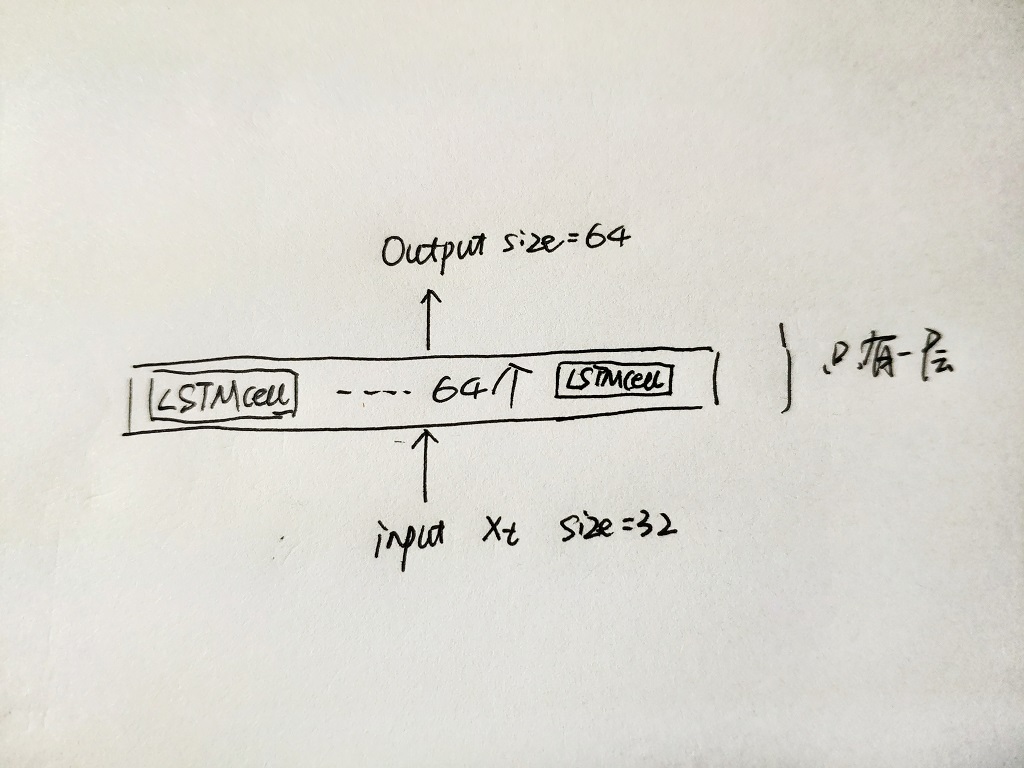 Output size=64
LSTMcell ---- 64个 LSTMcell
只有一层
input Xt size=32